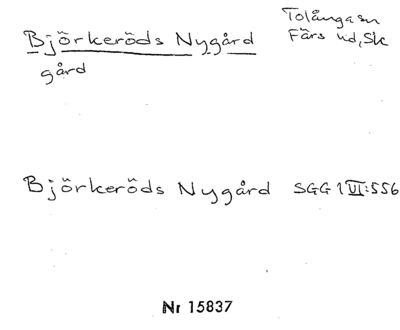 Björkeröds Nygård
Tolångasn
Färs hd, Sk
gård
Björkeröds Nygård SGG 1 VI:556
Nr 15837